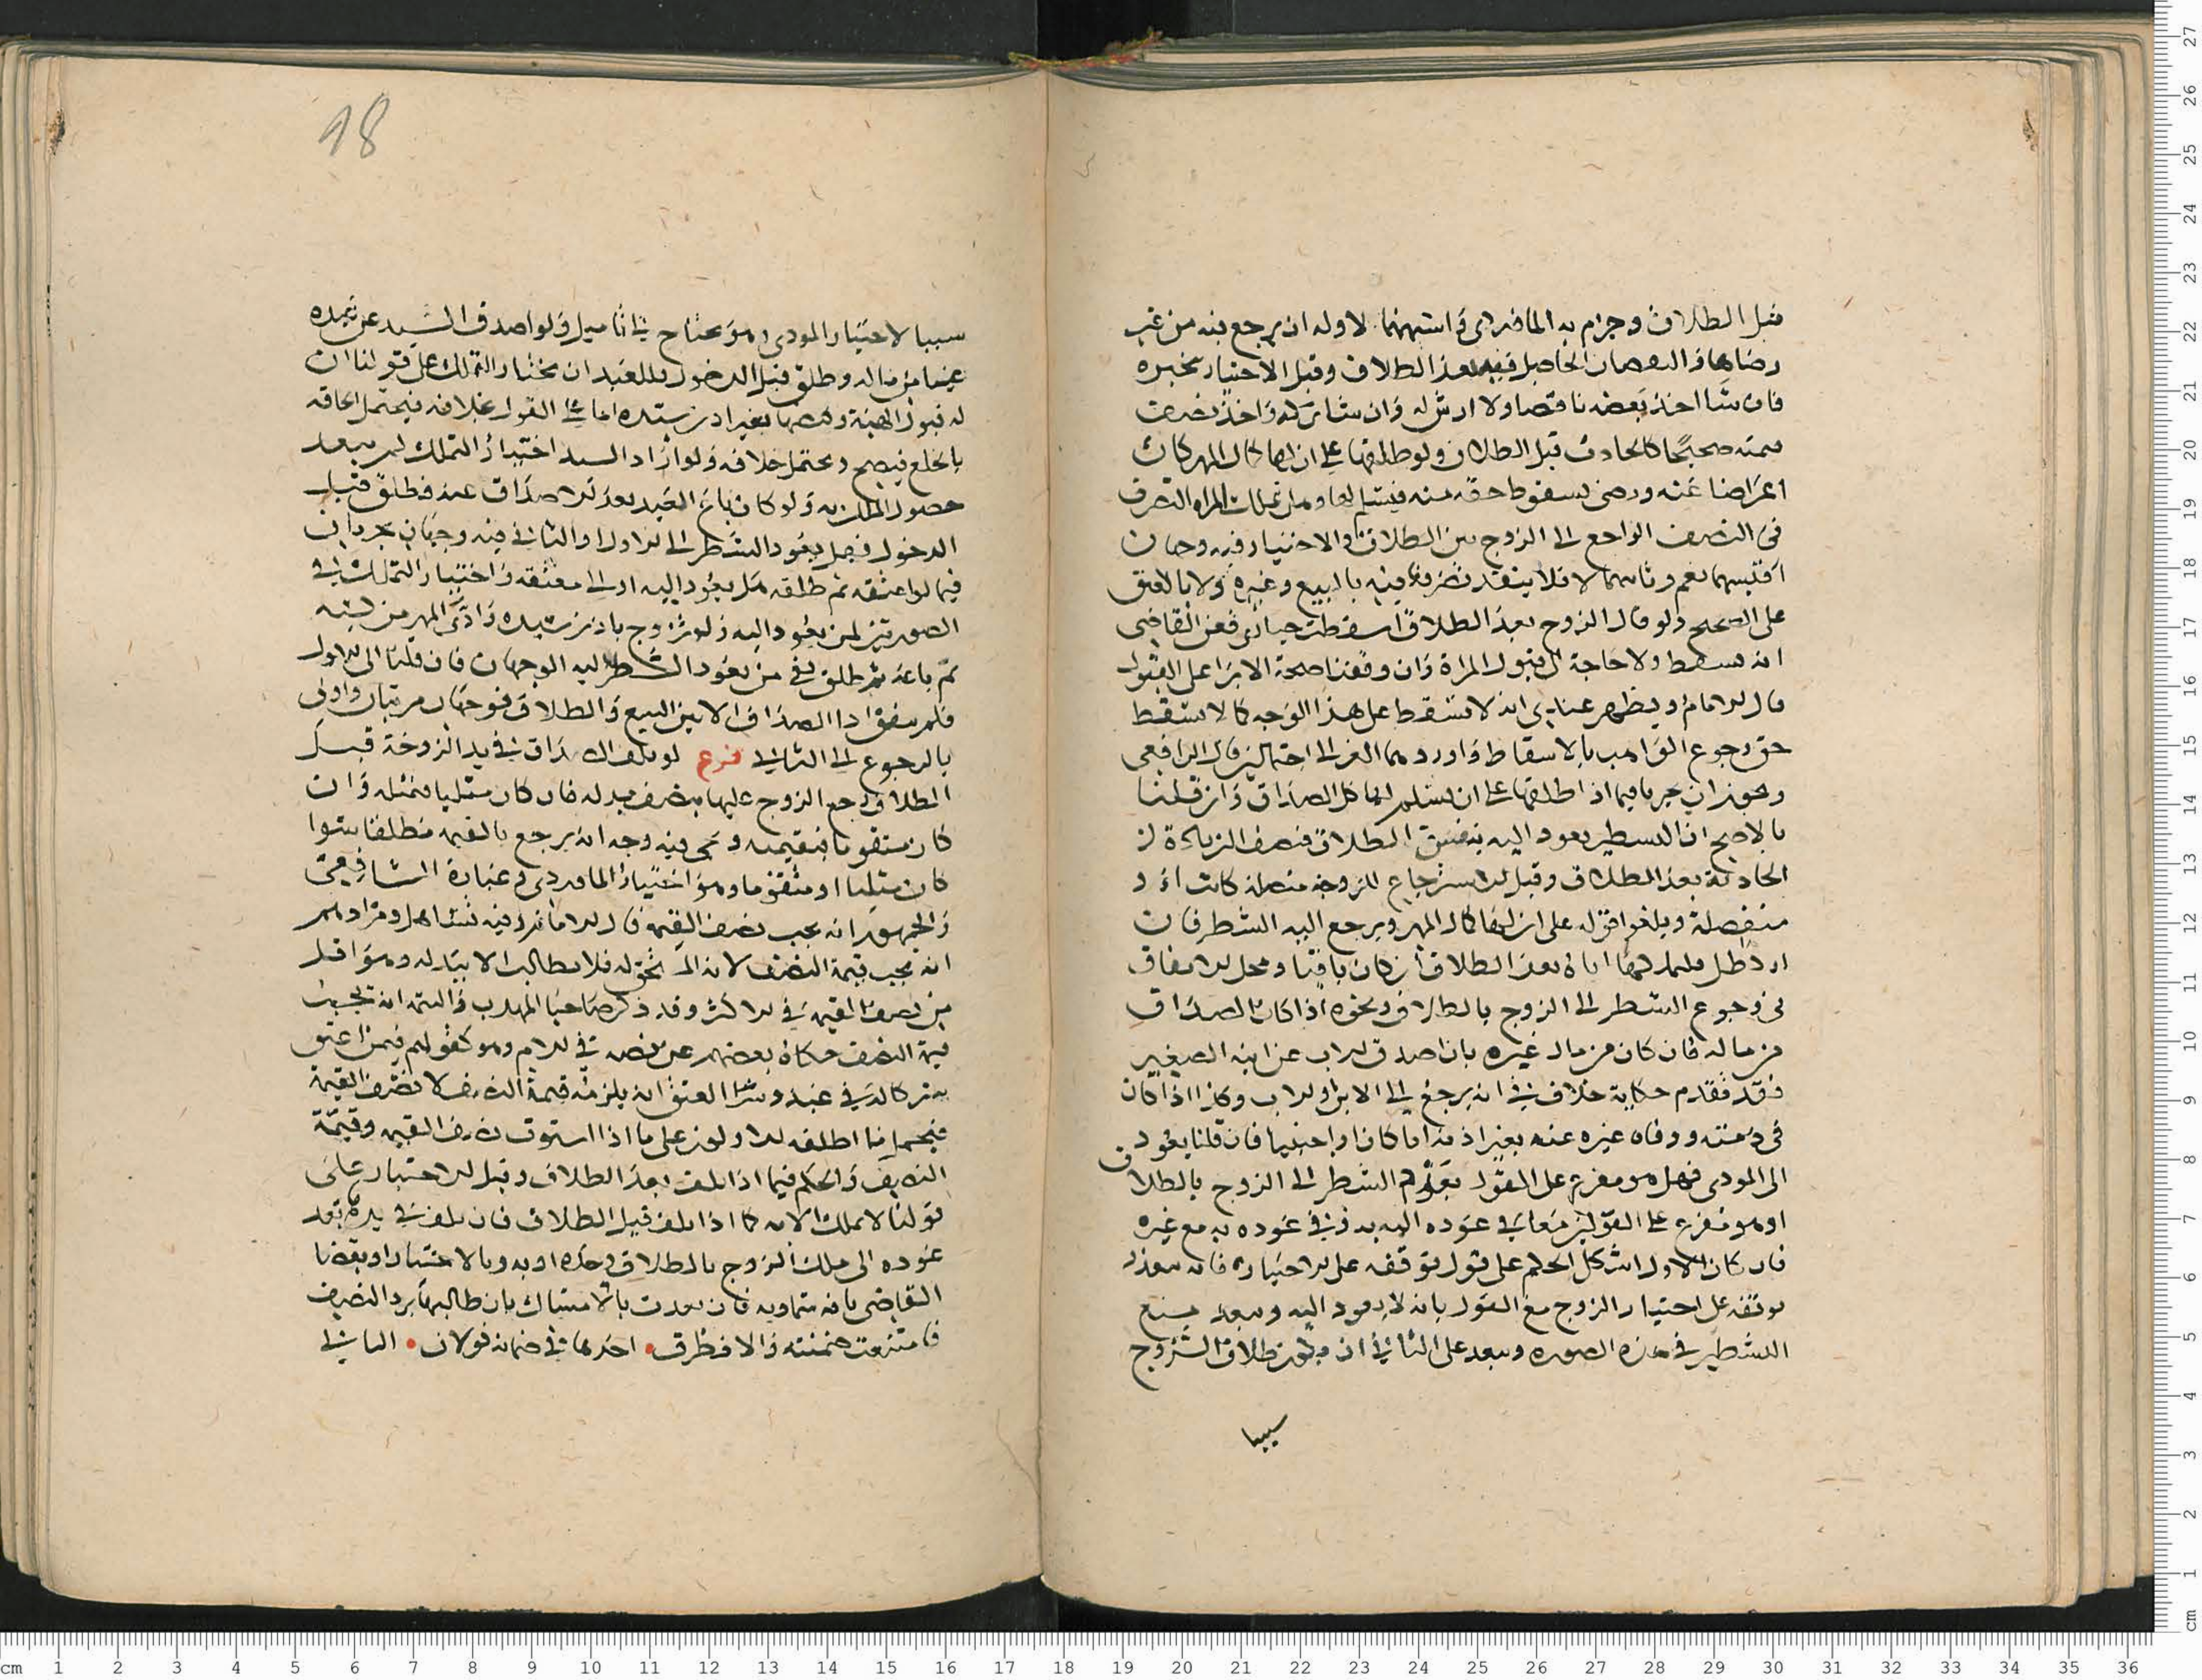 قبل الطلاق وجزم به الماوردي واشبههما لا وله ان يرجع فيه من غير
رضاها والنقصان الحاصل فيه بعد الطلاق وقبل الاختيار يخيره
فان شا اخذ بعضه ناقصا ولا ارش له وان شا تركه واخذ نصف
قيمته صحيحا كالحادث قبل الطلاق ولو طلقها على ان لها كمال المهر كان
اعراضا عنه ورضى بسقوط حقه منه فيسلم لها وهل تملك المراه التصرف
في النصف الراجع الى الزوج بين الطلاق والاختيار فيه وجهان
اقيسهما نعم وثانيهما لا فلا ينفذ تصرفها فيه بالبيع وغيره ولا بالعتق
على الصحيح ولو قال الزوج بعد الطلاق اسقطت خياري فعن القاضي
انه يسقط ولا حاجة الى قبول المراة وان وقفنا صحة الابرا على القبول
قال الامام ويظهر عندي انه لا تسقط على هذا الوجه كما لا تسقط
حق رجوع الواهب بالاسقاط واوردهما الغزالي احتمالين قال الرافعي
ويجوز ان يجريا فيما اذا طلقها على ان يسلم لها كل الصداق وان قلنا
بالاصح ان الشطر يعود اليه بنفس الطلاق فنصف الزيادة
الحادثة بعد الطلاق وقبل الاسترجاع للزوجة متصلة كانت او
منفصلة ويلغو قوله على ان لها كمال المهر ويرجع اليه الشطر فان
اراد فليملكها اياه بعد الطلاق ان كان باقيا ومحل الاتفاق
في رجوع الشطر الى الزوج بالطلاق ونحوه اذا كان الصداق
من ماله فان كان من مال غيره بان اصدق الاب عن ابنه الصغير
فقد تقدم حكاية خلاف في انه يرجع الى الابن او الاب وكذا اذا كان
في ذمته ووفاه غيره عنه بغير اذنه ابا كان او اجنبيا فان قلنا يعود
الى المودي فهل هو مفرع على القول بعود الشطر الى الزوج بالطلاق
او هو مفرع على القولين معا في عوده اليه به وفي عوده به مع غيره
فان كان الاول اشكل الحكم على قول توقفه على الاختيار فانه يبعد
توقفه على اختيار الزوج مع القول بانه لا يعود اليه ويبعد منع
التشطير في هذه الصورة ويبعد على الثاني ان يكون طلاق الزوج
سببا
18
سببا لاختيار المودي وهو محتاج الى تامل ولو اصدق السيد عن عبده
عينا من ماله وطلق قبل الدخول فللعبد ان يختار التملك على قولنا ان
له قبول الهبة وقبضها بغير اذن سيده اما على القول بخلافه فيحتمل الحاقه
بالخلع فيصح ويحتمل خلافه ولو اراد السيد اختيار التملك لم يبعد
حصول الملك به ولو كان باع العبد بعد الاصداق عنه فطلق قبل
الدخول فهل يعود الشطر الى الاول او الثاني فيه وجهان يجريان
فيما لو اعتقه ثم طلقه هل يعود اليه او الى معتقه واختيار التملك في
الصورتين لمن يعود اليه ولو تزوج باذن سيده وادى المهر من كسبه
ثم باعه ثم طلق ففي من يعود الشطر اليه الوجهان فان قلنا الى الاول
فلم يتفق ادا الصداق الا بين البيع والطلاق فوجهان مرتبان واولى
بالرجوع الى الثاني فرع لو تلف الصداق في يد الزوجة قبل
الطلاق رجع الزوج عليها بنصف بدله فان كان مثليا فمثله وان
كان متقوما فبقيمته ونحى فيه وجه انه يرجع بالقيمة مطلقا سوا
كان مثليا او متقوما وهو اختيار الماوردي وعبارة الشافعي
والجمهور انه يجب نصف القيمة قال الامام فيه تساهل ومرادهم
انه يجب قيمة النصف لانه الذي يحق له فلا يطالب الا ببدله وهو اقل
من نصف القيمة في الاكثر وقد ذكر صاحبا المهذب والتتمة انه يجب
قيمة النصف حكاه بعضهم عن نصه في الام وهو كقولهم فيمن اعتق
شركا له في عبد وسرا العتق انه يلزمه قيمة النصف لا نصف القيمة
فيحمل ما اطلقه الاولون على ما اذا استوت نصف القيمة وقيمة
النصف والحكم فيما اذا تلف بعد الطلاق وقبل الاختيار على
قولنا لا يملك الا به كما اذا تلف قبل الطلاق فان تلف في يدها بعد
عوده الى ملك الزوج بالطلاق وحده او به وبالاختيار او بقضا
القاضي بافة سماوية فان تعدت بالامساك بان طالبها برد النصف
فامتنعت ضمنته والا فطرق احدها في ضمانه قولان الثاني